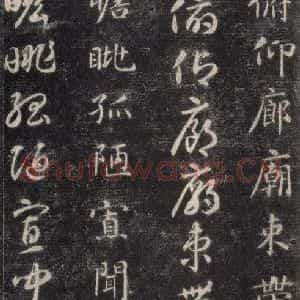 俯仰廊廟束帶
俯仰廊廟束帶
瞻眺孤陋寡聞
瞻眺孤陋寡聞
shufawang.cn